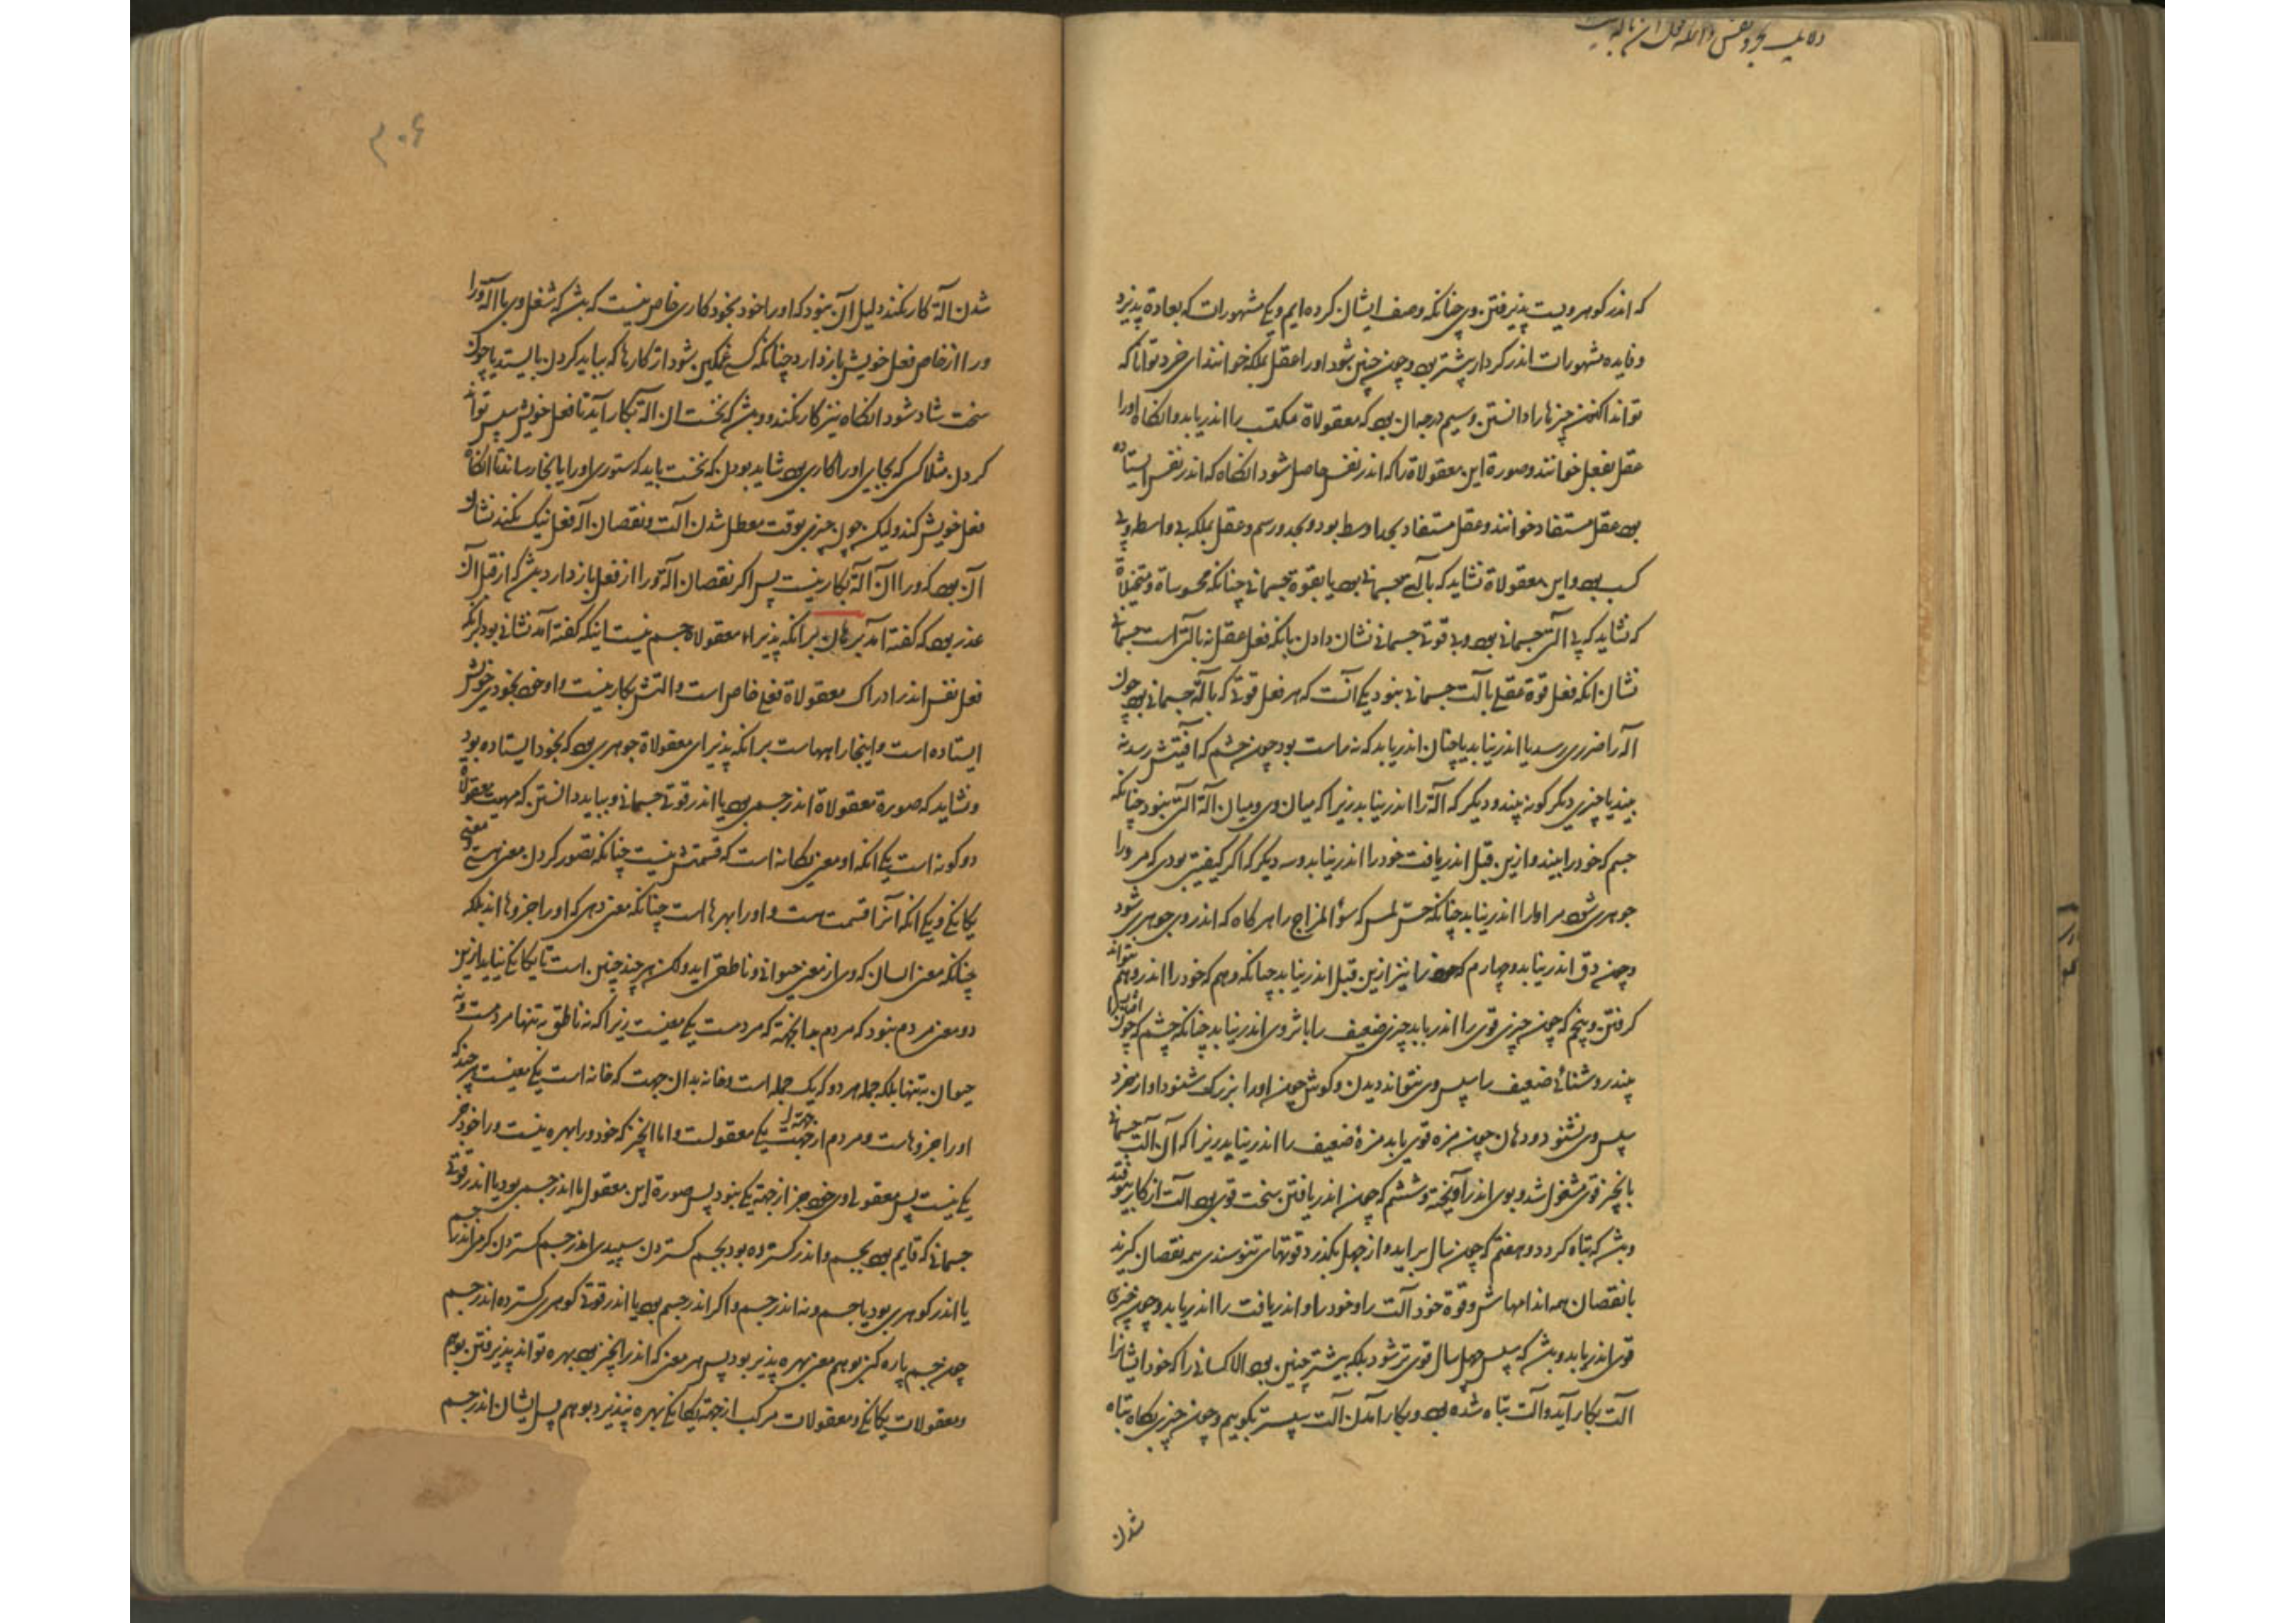 که اندر گوهر ویست پذیرفتن وی چنانکه وصف ایشان کرده ایم و یکی مشهورات که بعادة پذیرد
و فایده مشهورات اندر کردار بیشتر بود و چون چنین شود او را عقل بملکه خوانند ای خرد توانا که
تواند اکنون چیزها را دانستن و سیم درجه آن بود که معقولاة مکتسب را اندر یابد و انگاه او را
عقل بفعل خوانند و صورة این معقولاة را که اندر نفس حاصل شود انگاه که اندر نفس ایستاده
بود عقل مستفاد خوانند و عقل مستفاد بحد اوسط بود و بحد و رسم و عقل بملکه بی واسطه و بی
کسب بود و این معقولاة نشاید که بآلتی جسمانی بود یا بقوة جسمانی چنانکه محسوساة و متخیلاة
که نشاید که بی آلتی جسمانی بود و بی قوتی جسمانی نشان دادن بانکه فعل عقل نه بآلتی است جسمانی
نشان انکه فعل قوة عقلی بآلت جسمانی نبود یکی آنست که هر فعل قوتی که بآلة جسمانی بود چون
آله را ضرری رسد یا اندر نیابد یا چنان اندر یابد که نه راست بود چون چشم که آفتیش رسد نه
بیند یا چیزی دیگر گونه بیند و دیگر که آلة را اندر نیابد زیرا که میان وی و میان آلة آلتی نبود چنانکه
چشم که خود را نبیند و ازین قبل اندر یافت خود را اندر نیابد و سه دیگر که اگر کیفیتی بودی که مر ورا
جوهری شود مر او را اندر نیابد چنانکه حس لمس که سؤ المزاج را هر گاه که اندر وی جوهری شود
و چون دق اندر نیابد و چهارم که خود را نیز ازین قبل اندر نیابد چنانکه وهم که خود را اندر وهم نتواند
گرفتن و پنجم که چون چیزی قوی را اندر یابد چیزی ضعیف را باثر وی اندر نیابد چنانکه چشم که چون آفتاب را
بیند روشنائی ضعیف را سپس وی نتواند دیدن و گوش چون اورا بزرگ شنود اواز خرد
سپس وی نشنود و دهان چون مزه قوی یابد مزۀ ضعیف را اندر نیابد زیرا که آن آلت جسمانی
بانچیز قوی مشغول شد و بوی اندر آویخته و ششم که چون اندر یافتن سخت قوی بود آلت از کار بیوفتد
و بشد که تباه گردد و هفتم که چون سال برآید و از چهل بگذرد قوتهای تنومندی همه نقصان گیرند
با نقصان همه اندامهاش و قوة خود آلت را و خود را و اندر یافت را اندر یابد و چون چیزی
قوی اندر یابد و بشد که سپس چهل سال قوی تر شود بلکه بیشتر چنین بود الا کسانی را که خود ایشانرا
آلت بکار آید و آلت تباه شده بود و بکار آمدن آلت سپستر بگوییم و چون چیزی بگاه تباه
شدن
۴۰۶
شدن آلة کار نکند دلیل آن نبود که او را خود بخود کاری خاص نیست که بشد که شغل وی با آلة ورا
ورا از خاص فعل خویش باز دارد چنانکه کسی غمگین شود از کارها که بباید کردن بایستد یا چون
سخت شاد شود انگاه نیز کار نکند و بشد که نخست آن آلة بکار آید تا فعل خویش سپس تواند
کردن مثلا کسی که بجایی اورا کاری بود شاید بودن که نخست باید که ستوری اورا بانجا رساند تا انگاه
فعل خویش کند ولیکن چون چیزی بوقت معطل شدن آلت و نقصان آلة فعل نیک نکند نشان
آن بود که ورا آن آلة بکار نیست پس اگر نقصان آلة ورا از فعل باز دارد بشد که از قبل آن
عذر بود که گفته آمد برهان برانکه پذیراء معقولاة جسم نیست اینکه گفته آمد نشانی بود برانکه
فعل نفس اندر ادراک معقولاة فعلی خاص است و آلتش بکار نیست و او خود بخودی خویش
ایستاده است و اینجا راهیهاست برانکه پذیرای معقولاة جوهری بود که بخود ایستاده بود
و نشاید که صورة معقولاة اندر جسمی بود یا اندر قوتی جسمانی و بباید دانستن که مهیت معقولاة
دو گونه است یکی انکه او معنی یگانه است که قسمتش نیست چنانکه تصور کردن معنی هستی و معنی
یگانگی و یکی انکه آنرا قسمت هست و اورا بهرها است چنانکه معنی دهی که او را جزوها اند بلکه
چنانکه معنی انسان که وی از معنی حیوانی و ناطقی آید ولکن هر چند چنین است تا یگانگی نیابد از این
دو معنی مردم نبود که مردم بدانجهة که مردمست یکی معنیست زیرا که نه ناطق به تنها مردمست و نه
حیوان به تنها بلکه جمله هر دو که یک جمله است و خانه بدان جهت که خانه است یکی معنیست هر چند که
اورا جزوهاست و مردم از جهت یکی معقولست و اما انچیز که خود ورا بهره نیست ورا خود جز
یکی نیست پس معقولی وی خود جز از جهة یکی نبود پس صورة این معقول یا اندر جسمی بود یا اندر قوتی
جسمانی که قایم بود بجسم و اندر گسترده بود بجسم گستردن سپیدی اندر جسم گستردن گرمی اندر جسم
یا اندر گوهری بود یا جسم و نه اندر جسم و اگر اندر جسم بود یا اندر قوتی گوهری گسترده اندر جسم
چون جسم پاره کنی بوهم معنی بهره پذیر بود پس هر معنی که اندر انچیز بود بهره تواند پذیرفتن بوهم
و معقولات یگانگی و معقولات مرکب از جهة یگانگی بهره نپذیرد بوهم پس ایشان اندر جسم